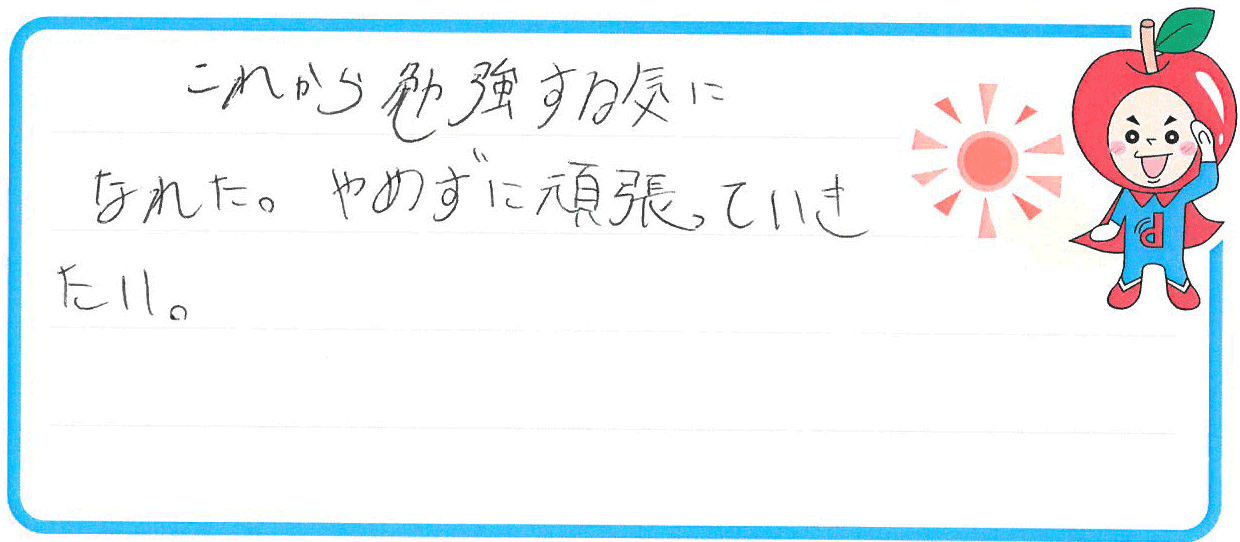 これから勉強する気に
なれた。やめずに頑張っていき
たい。